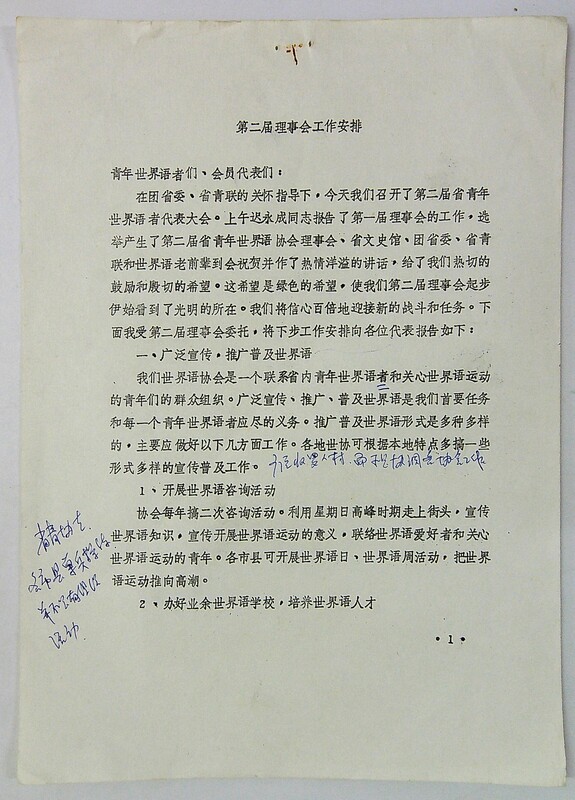 第二届理事会工作安排
青年世界语者们、会员代表们：
在团省委、省青联的关怀指导下，今天我们召开了第二届省青年
世界语者代表大会。上午迟永成同志报告了第一届理事会的工作，选
举产生了第二届省青年世界语协会理事会、省文史馆、团省委、省青
联和世界语老前辈到会祝贺并作了热情洋溢的讲话，给了我们热切的
鼓励和殷切的希望。这希望是绿色的希望，使我们第二届理事会起步
伊始看到了光明的所在。我们将信心百倍地迎接新的战斗和任务。下
面我受第二届理事会委托，将下步工作安排向各位代表报告如下：
一、广泛宣传，推广普及世界语
我们世界语协会是一个联系省内青年世界语者和关心世界语运动
的青年们的群众组织。广泛宣传、推广、普及世界语是我们首要任务
和每一个青年世界语者应尽的义务。推广普及世界语形式是多种多样
的，主要应做好以下几方面工作。各地世协可根据本地特点多搞一些
形式多样的宣传普及工作。
1、开展世界语咨询活动
协会每年搞二次咨询活动。利用星期日高峰时期走上街头，宣传
世界语知识，宣传开展世界语运动的意义，联络世界语爱好者和关心
世界语运动的青年。各市县可开展世界语日、世界语周活动，把世界
语运动推向高潮。
2、办好业余世界语学校，培养世界语人才
·1·
活动